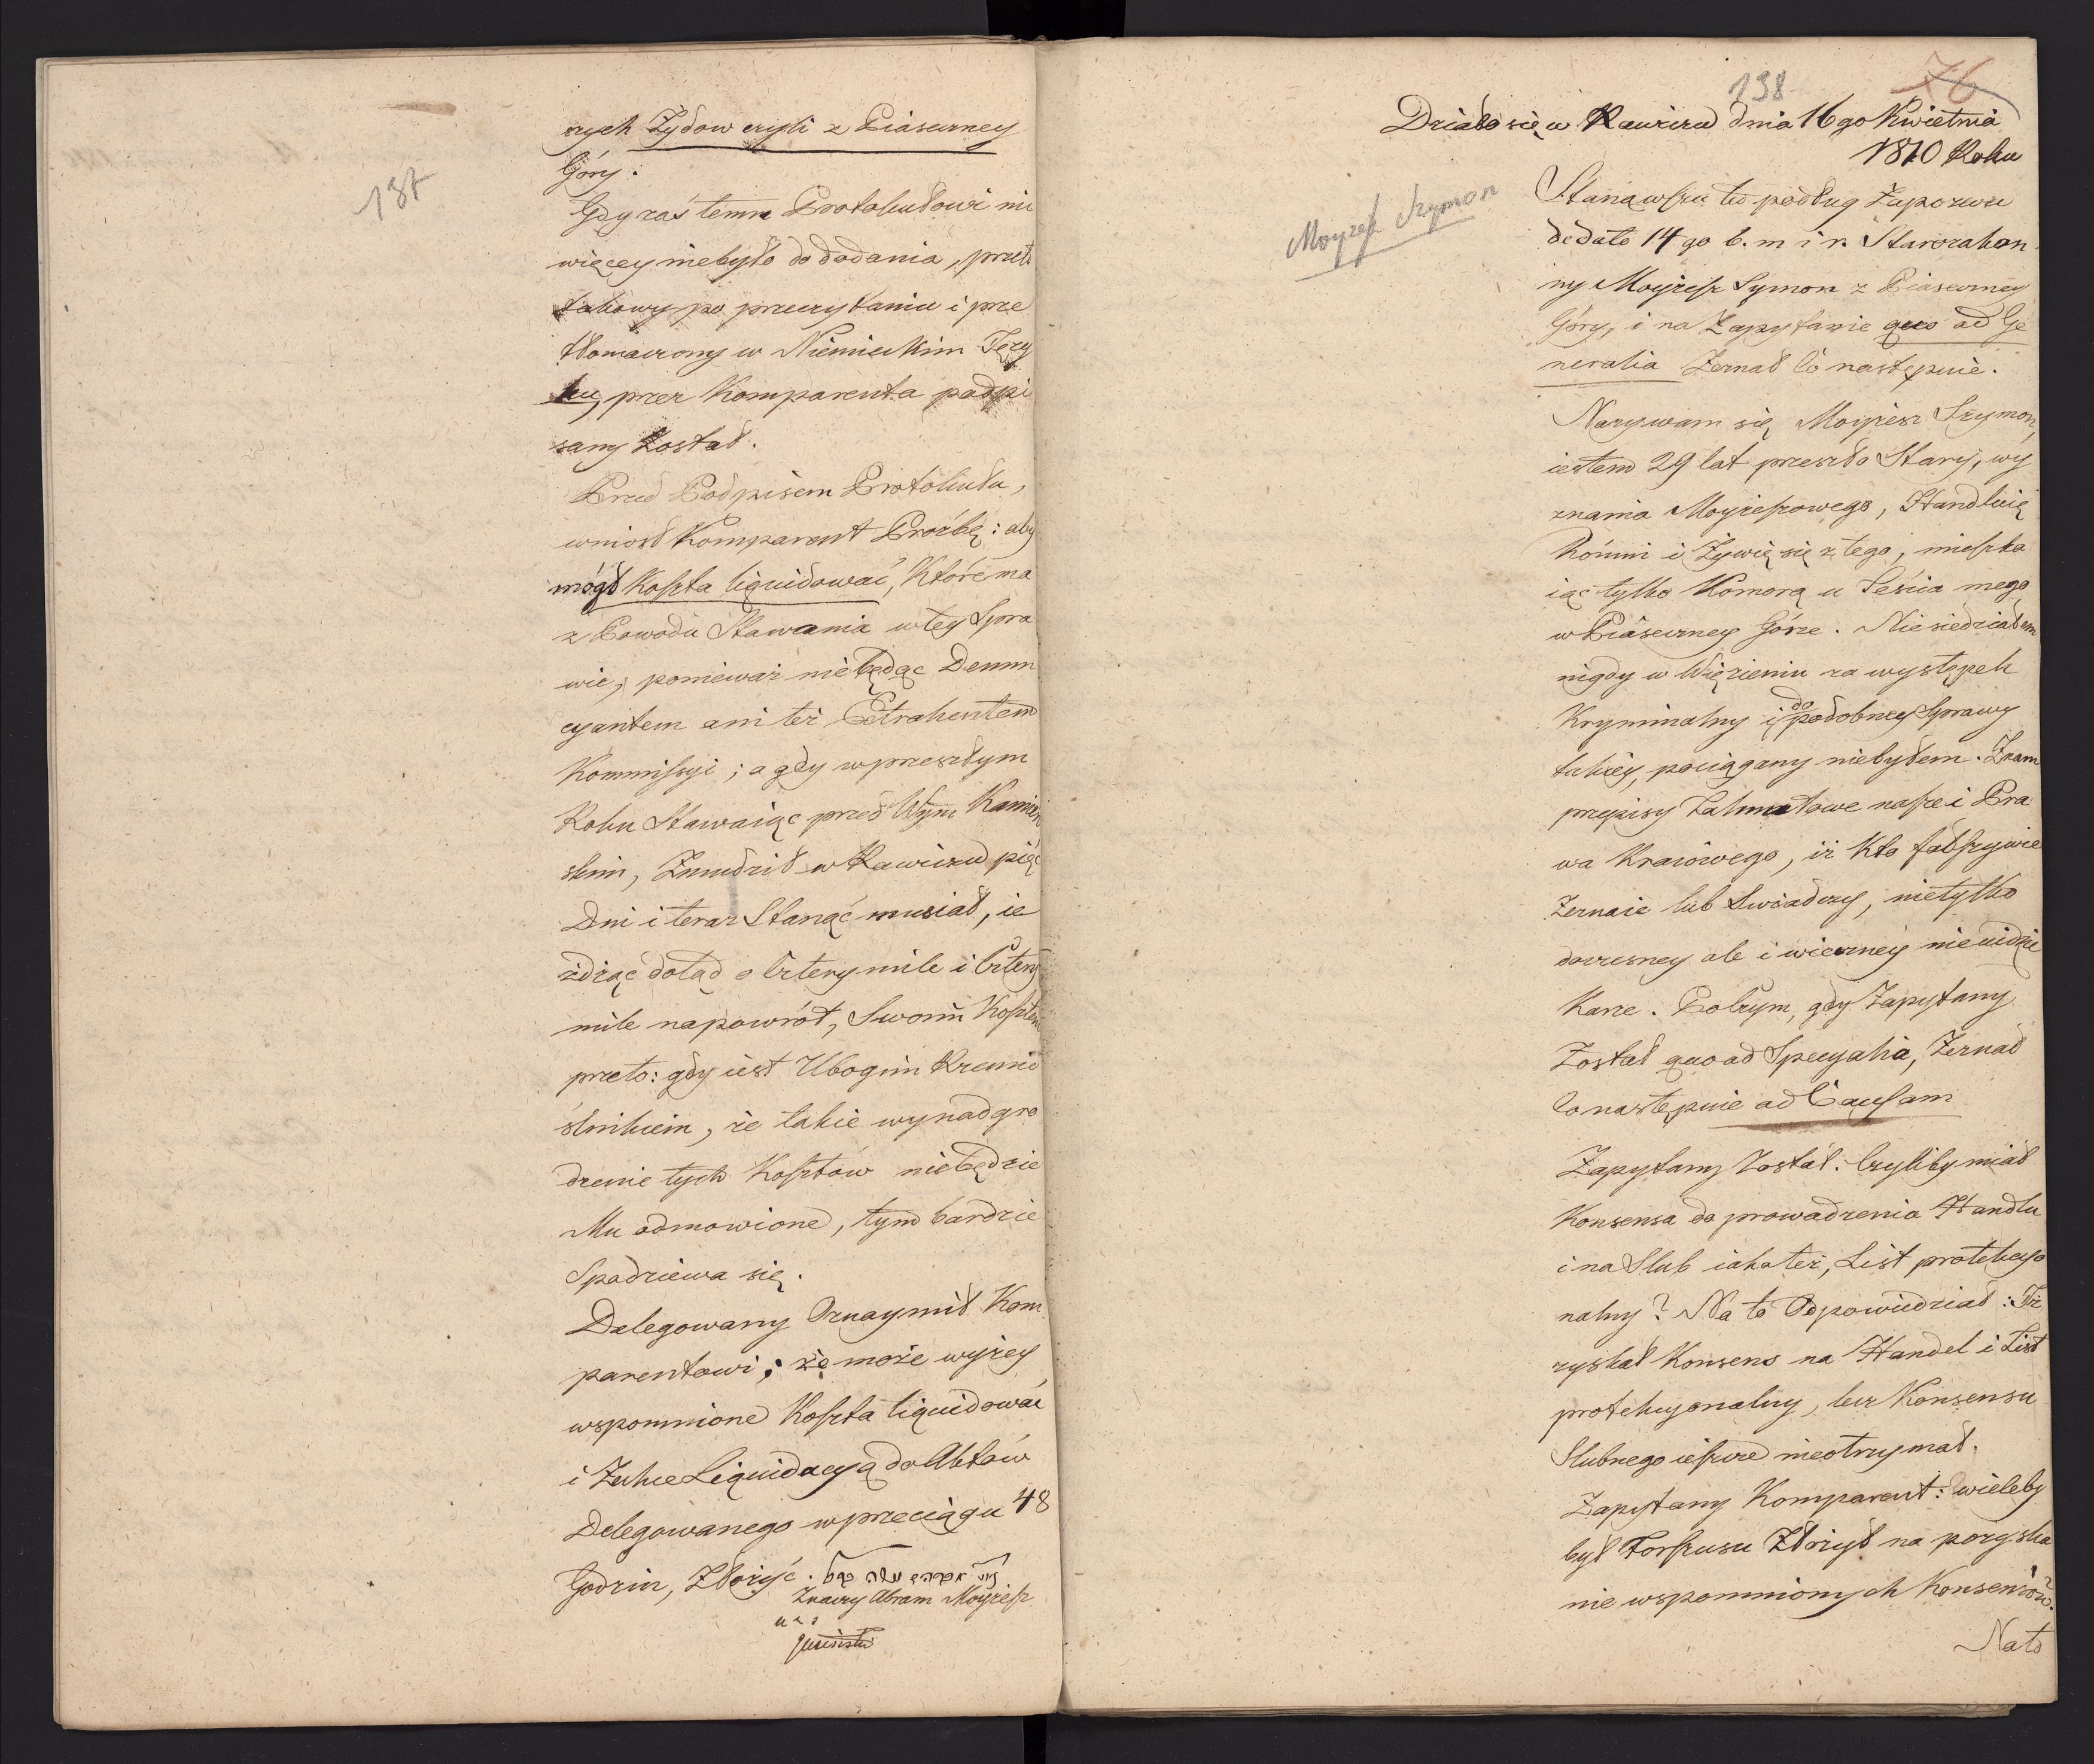 137
rych Żydow czyli z Piaseczney
Góry.
Gdy zaś temu Protokułowi nic
więcey niebyło do dodania, przeto
takowy po przeczytaniu i prze
tłomaczony w Niemieckim Języ
ku, przez Komparenta podpi
sany został.
Przed Podpisem Protokułu,
wniosł Komparent Proźbę: aby
mógł Koszta liquidować, Które ma
z Powodu Stawania w tey Spra
wie, ponieważ nie będąc Denun
cyantem ani też Extrahentem
Kommissyi; a gdy w przeszłym
Roku Stawaiąc przed Wym Kamień
skim, Zmudził w Rawiczu pięć
Dni i teraz Stanąć musiał, ie
żdżąc dotąd o Cztery mile i Cztery
mile napowrót, Swoim Kosztem
przeto: gdy iest Ubogim Rzemie
ślnikiem, że takie wynadgro
dzenie tych Kosztów niebędzie
Mu odmowione, tym bardzie
Spodziewa się.
Delegowany Oznaymił Kom
parentowi; że może wyżey
wspomnione Koszta liquidować
i Zechce Liquidacyą do Aktów
Delegowanego w przeciągu 48
Godzin, Złożyć.
Znaczy Abram Moyżesz
138
76
Działo się w Rawiczu dnia 16go Kwietnia
1810 Roku
Moyżesz Szymon
Stanąwszu tu podług Zapozwu
de dato 14go b. m i r. Starozakon
ny Moyżesz Symon z Piaseczney
Góry, i na Zapytanie quo ad Ge
neralia Zeznał Co następuie.
Nazywam się Moyżesz Szymon,
iestem 29 lat przeszło Stary, wy
znania Moyżeszowego, Handluię
Końmi i Żywię się z tego, mieszka
iąc tylko Komorą u Teścia mego
w Piaseczney Górze. Nie siedziałem
nigdy w Więzieniu za występek
Kryminalny i do podobney Sprawy
takiey, pociągany niebyłem. Znam
przepisy Talmutowe nasze i Pra
wa Kraiowego, iż Kto fałszywie
Zeznaie lub Swiadczy, nietylko
doczesney ale i wieczney nie uidzie
Karze. Poczym, gdy Zapytany
Został quo ad Specyalia, Zeznał
Co następuie ad Causam
Zapytany Został: Czyliby miał
Konsensa do prowadzenia Handlu
i na Slub iako też, List protekcyo
nalny? Na to Odpowiedział: Iż
zyskał Konsens na Handel i List
protekcyonalny, lecz Konsensu
Slubnego ieszcze nieotrzymał.
Zapytany Komparent: wieleby
był Forszusu Złożył na pozyska
nie wspomnionych Konsensów?
Nato